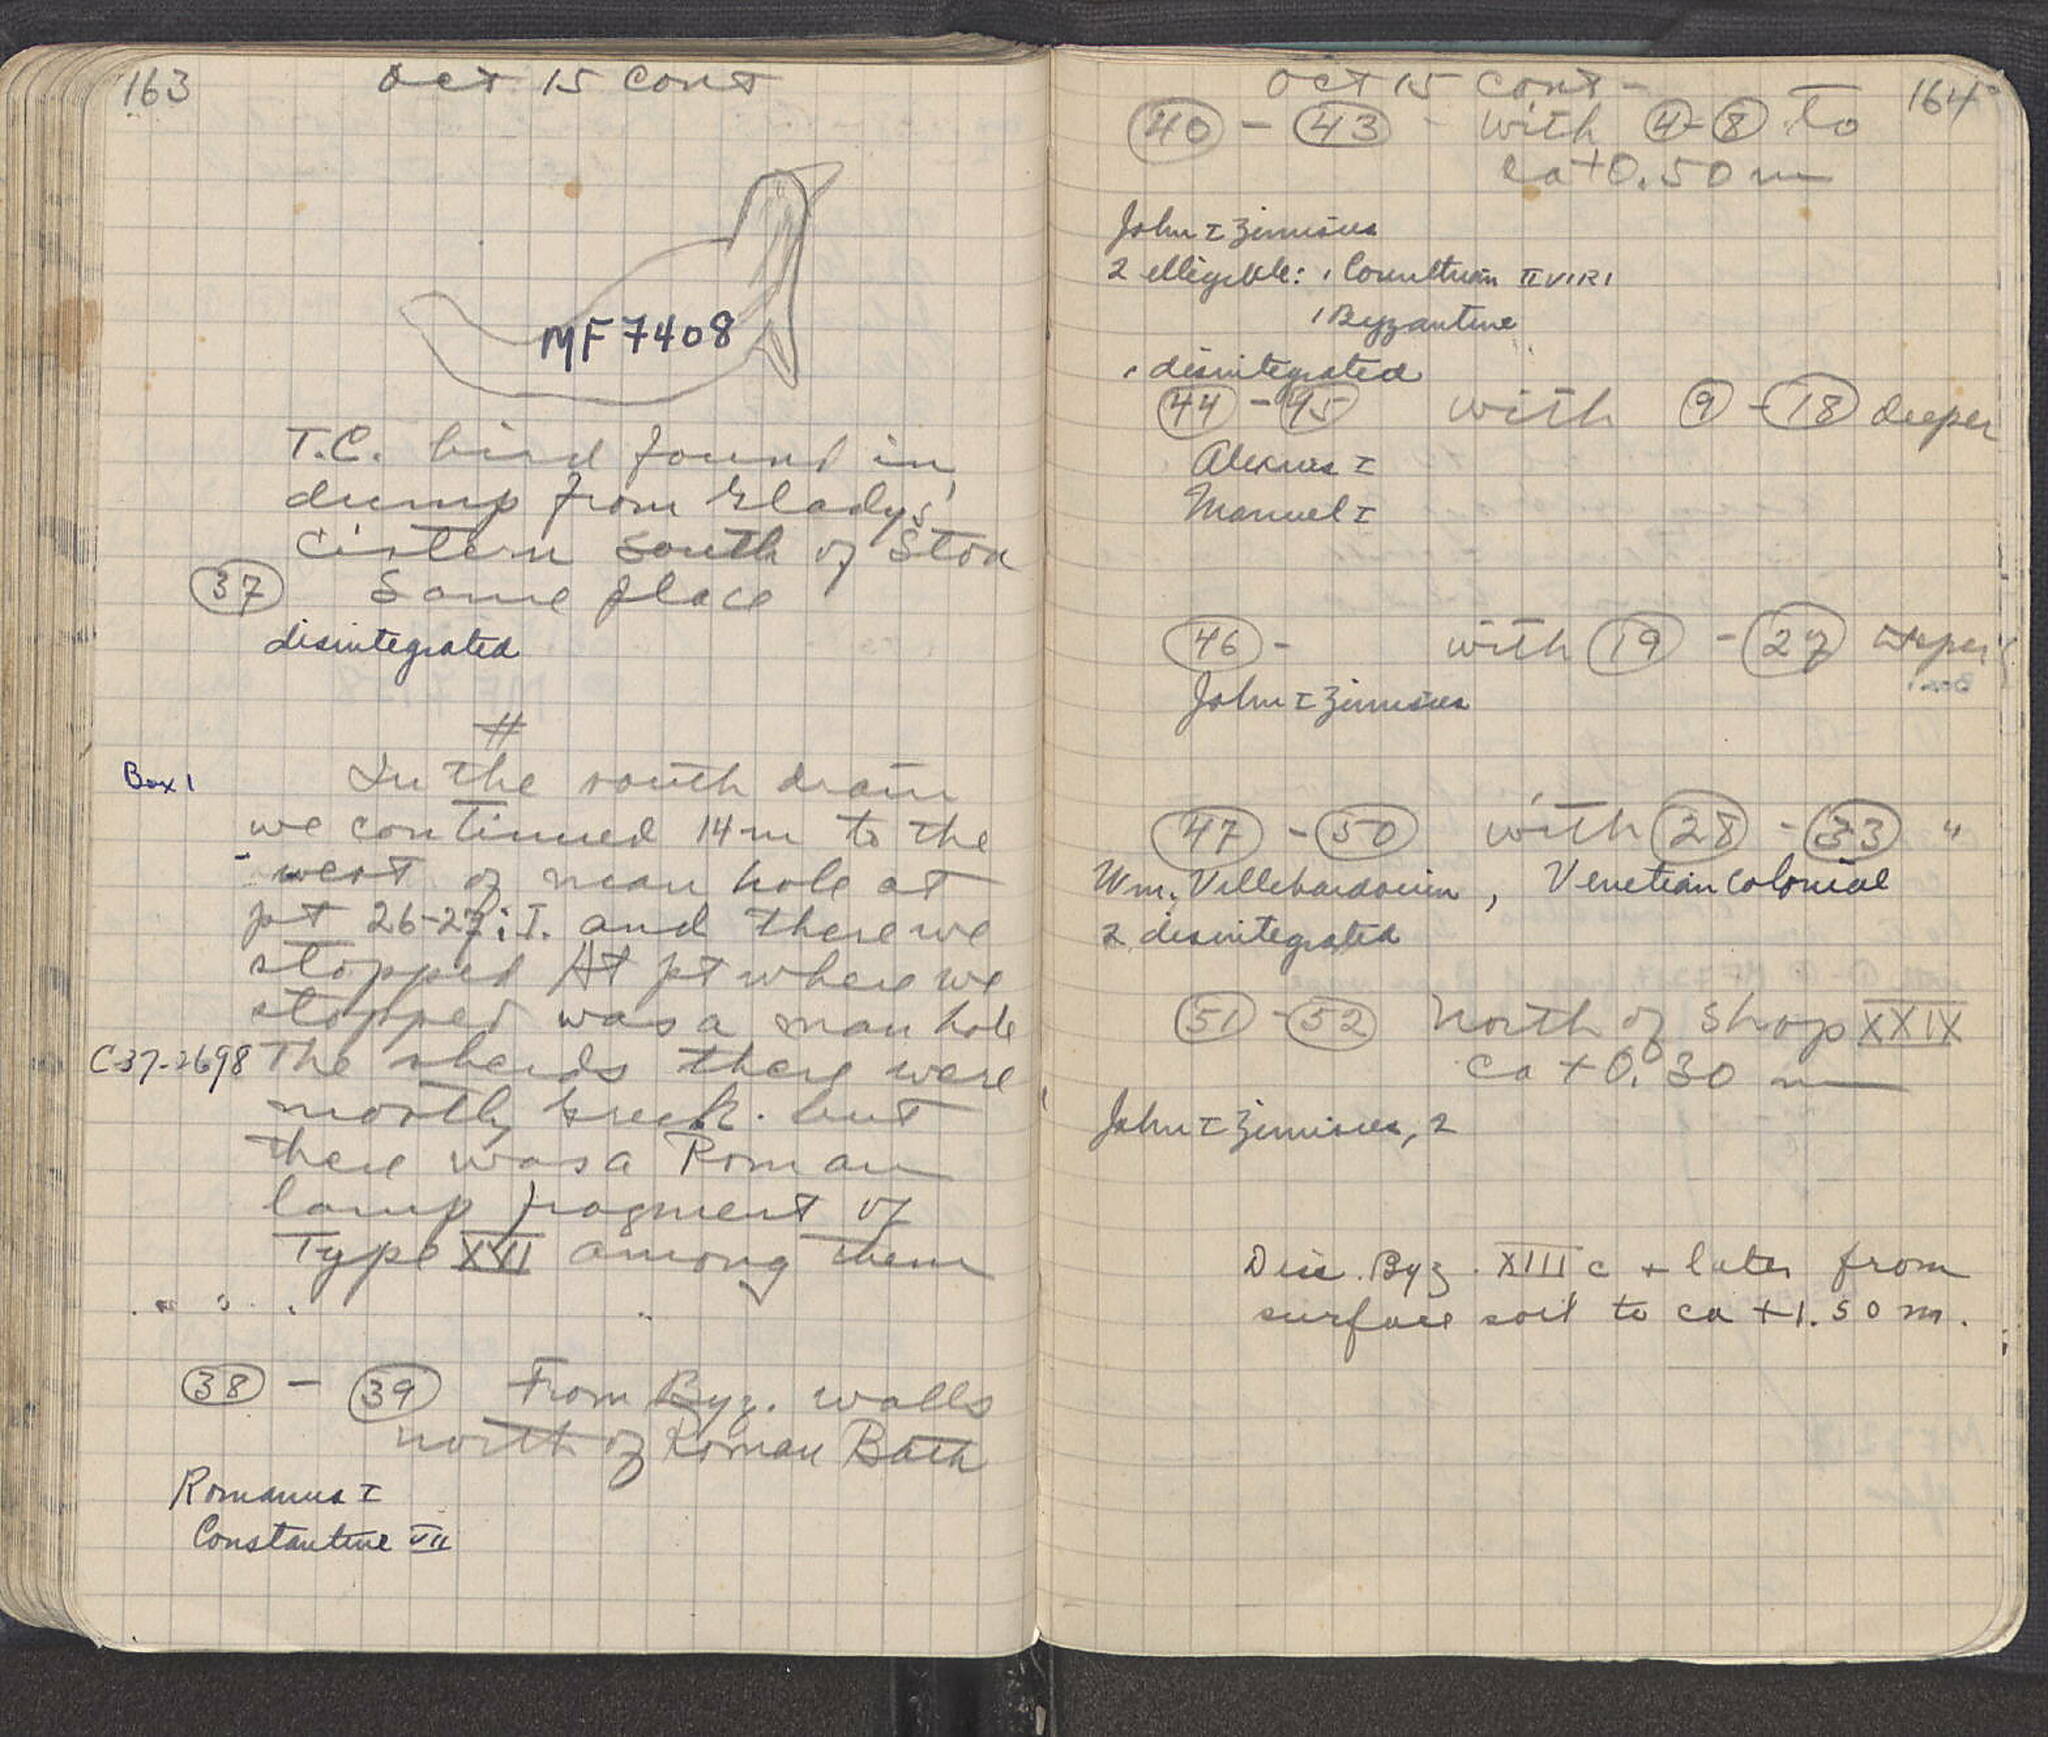 163
Oct 15 cont
MF 7408
T.C. bird found in
dump from Gladys'
cistern south of Stoa
37 Same place
disintegrated
#
Box 1
In the south drain
we continued 14 m to the
west of man hole at
pt 26-27:I. and there we
stopped At pt where we
stopped was a man hole
C-37-2698 The sherds there were
mostly Greek. but
there was a Roman
lamp fragment of
Type XVI among them
38 - 39 From Byz. walls
north of Roman Bath
Romanus I
Constantine VII
Oct 15 cont -
164
40 - 43 - with 4-8 to
ca +0.50 m
John I Zimisces
2 illegible: 1 Corinthian II VIRI
1 Byzantine
1 disintegrated
44 - 45 with 9 - 18 deeper
Alexius I
Manuel I
46 - with 19 - 27 deeper
John I Zimisces
47 - 50 with 28 - 33 "
Wm. Villehardouin, Venetian colonial
2 disintegrated
51 - 52 North of Shop XXIX
ca +0.30 m
John I Zimisces, 2
Disc. Byz. XIII c + later from
surface soil to ca +1.50 m.